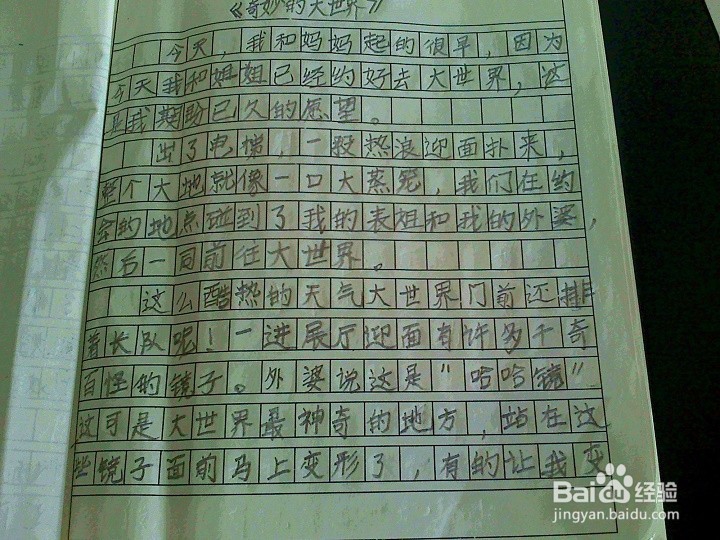 《奇妙的大世界》
今天，我和妈妈起的很早，因为
今天我和姐姐已经约好去大世界，这
是我期盼已久的愿望。
出了电梯，一股热浪迎面扑来，
整个大地就像一口大蒸笼，我们在约
定的地点碰到了我的表姐和我的外婆，
然后一同前往大世界。
这么酷热的天气大世界门前还排
着长队呢！一进展厅迎面有许多千奇
百怪的镜子。外婆说这是“哈哈镜”
这可是大世界最神奇的地方，站在这
些镜子面前马上变形了，有的让我变
Baidu经验
jingyan.baidu.com